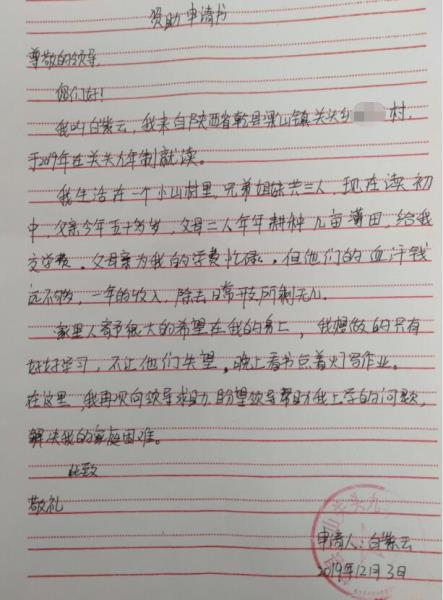 资助申请书
尊敬的领导,
您们好!
我叫白紫云,我来自陕西省乾县梁山镇关头乡 村,
于2019年在关头九年制就读。
我生活在一个小山村里,兄弟姐妹共三人,现在读初
中,父亲今年五十多岁,父母二人年年耕种几亩薄田,给我
交学费。父母亲为我的学费忙碌。但他们的血汗钱
远不够,一年的收入,除去日常开支所剩无几。
家里人寄予很大的希望在我的身上,我想做的只有
好好学习,不让他们失望,晚上看书点着火写作业。
在这里,我再次向领导求助,盼望领导帮助我上学的问题,
解决我的家庭困难。
此致
敬礼
申请人:白紫云
2019年12月3日